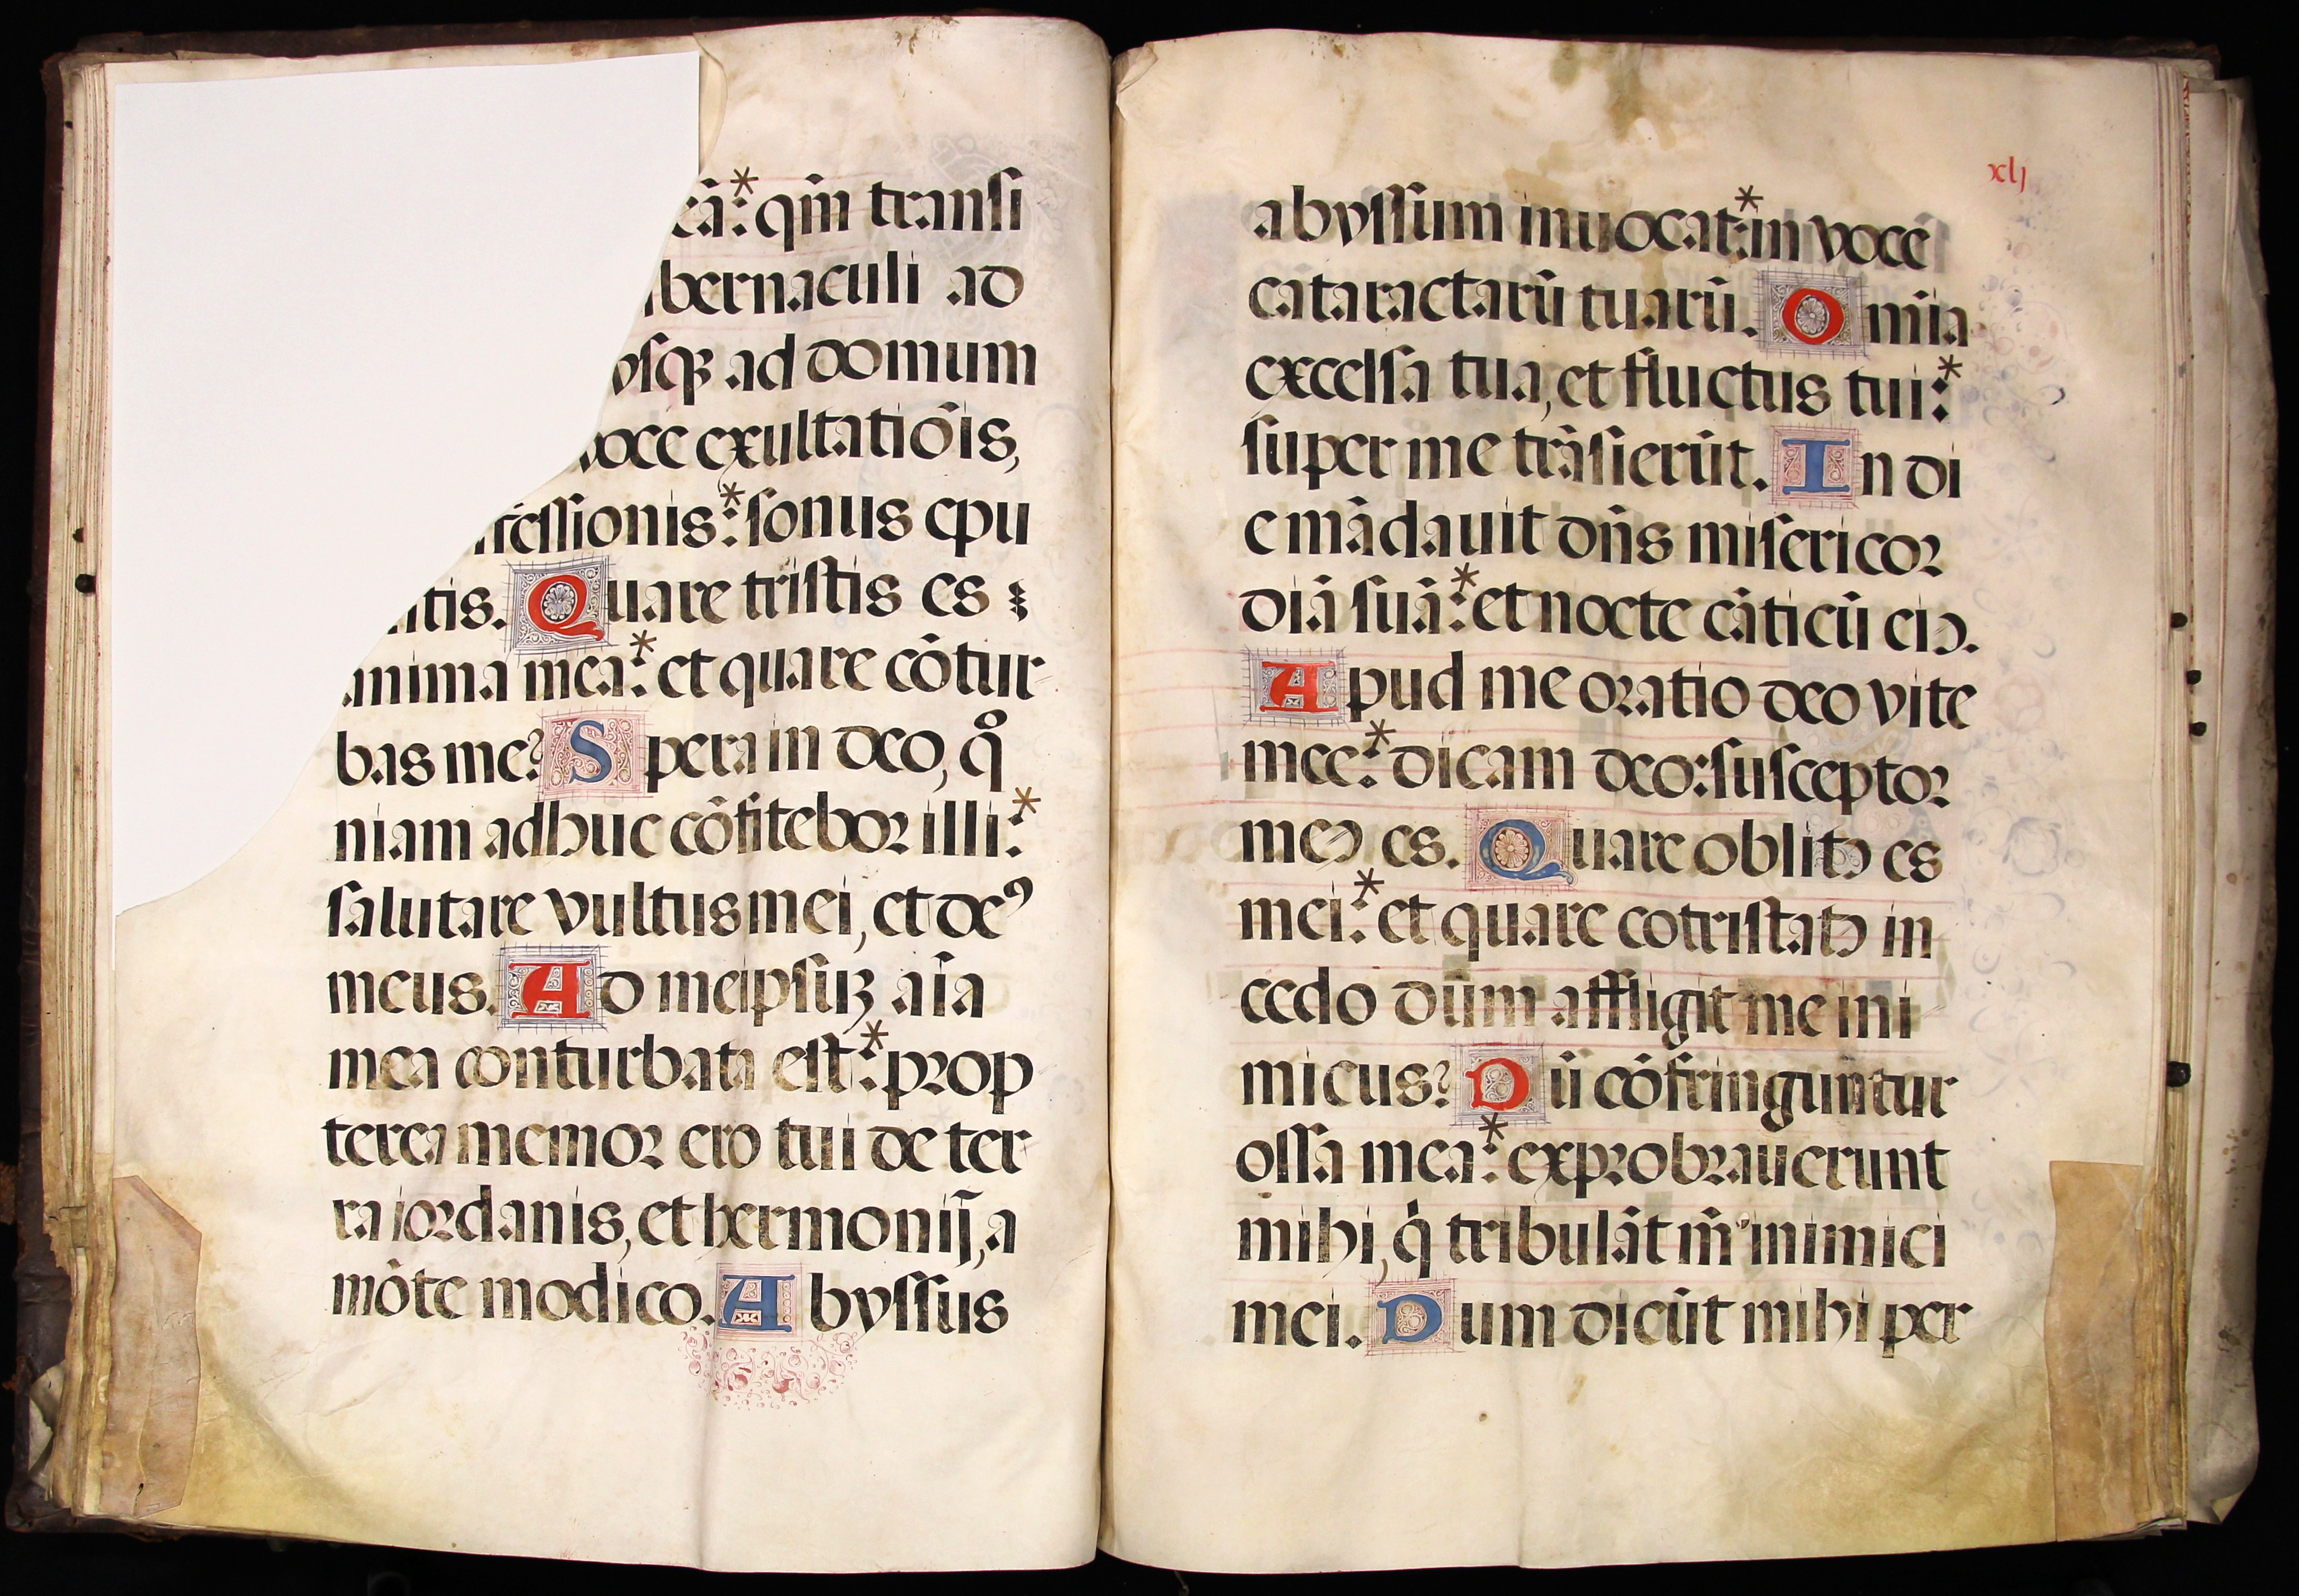 eā: * qm̄ transi
bernaculi ad
vsqꝫ ad domum
voce exultatiōis,
fessionis: * sonus epu
ntis. Quare tristis es
anima mea: * et quare cōtur
bas me? Spera in deo, qͦ
niam adhuc cōfitebor illi: *
salutare vultus mei, et deꝰ
meus. Ad meipsuꝫ aīa
mea conturbata est: * prop
terea memor ero tui de ter
ra iordanis, et hermonij, a
mōte modico. Abyssus
xlj
abyssum inuocat: * in voce
cataractarū tuarū. Omīa
excelsa tua, et fluctus tui: *
super me trāsierūt. In di
e mādauit dn̄s misericor
diā suā: * et nocte cāticū eiꝰ.
Apud me oratio deo vite
mee: * dicam deo: susceptor
meꝰ es. Quare oblitꝰ es
mei: * et quare cotristatꝰ in
cedo dūm affligit me ini
micus? Dū cōfringuntur
ossa mea: * exprobrauerunt
mihi, qi tribulāt m̄ inimici
mei. Dum dicūt mihi per